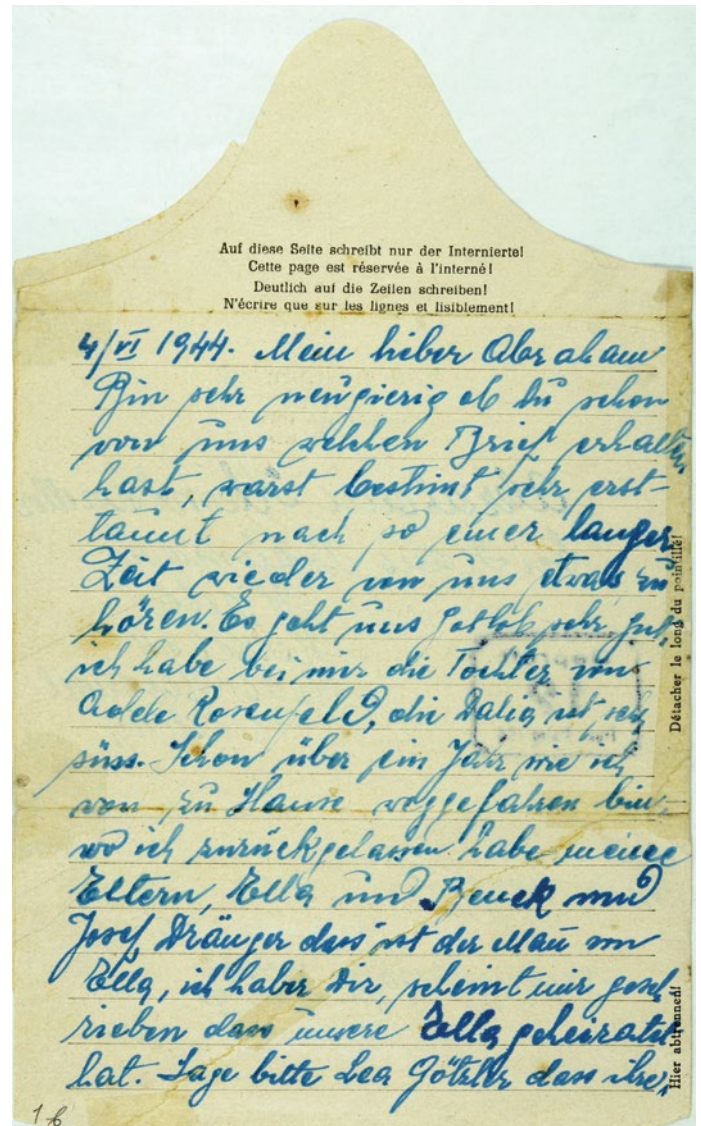 Auf diese Seite schreibt nur der Internierte!
Cette page est réservée à l'interné!
Deutlich auf die Zeilen schreiben!
N'écrire que sur les lignes et lisiblement!
4/VI 1944. Mein lieber Abraham
Bin sehr neugierig ob du schon
von uns welchen Brief erhalten
hast, warst bestimt sehr erst-
taunt nach so einer langer
Zeit wieder von uns etwas zu
hören. Es geht uns Gotlob sehr gut,
ich habe bei mir die Tochter von
Adele Rosenfeld, die Dalia ist sehr
süss. Schon über ein Jahr wie ich
von zu Hause weggefahren bin,
wo ich zurückgelassen habe meine
Eltern, Ella und Benek und
Josef Dränger dass ist der Man von
Ella, ich habe Dir, scheint mir gesch-
rieben dass unsere Ella geheiratet
hat. Sage bitte Lea Götzler dass ihre,
Détacher le long du pointillé!
Hier abtrennen!
16